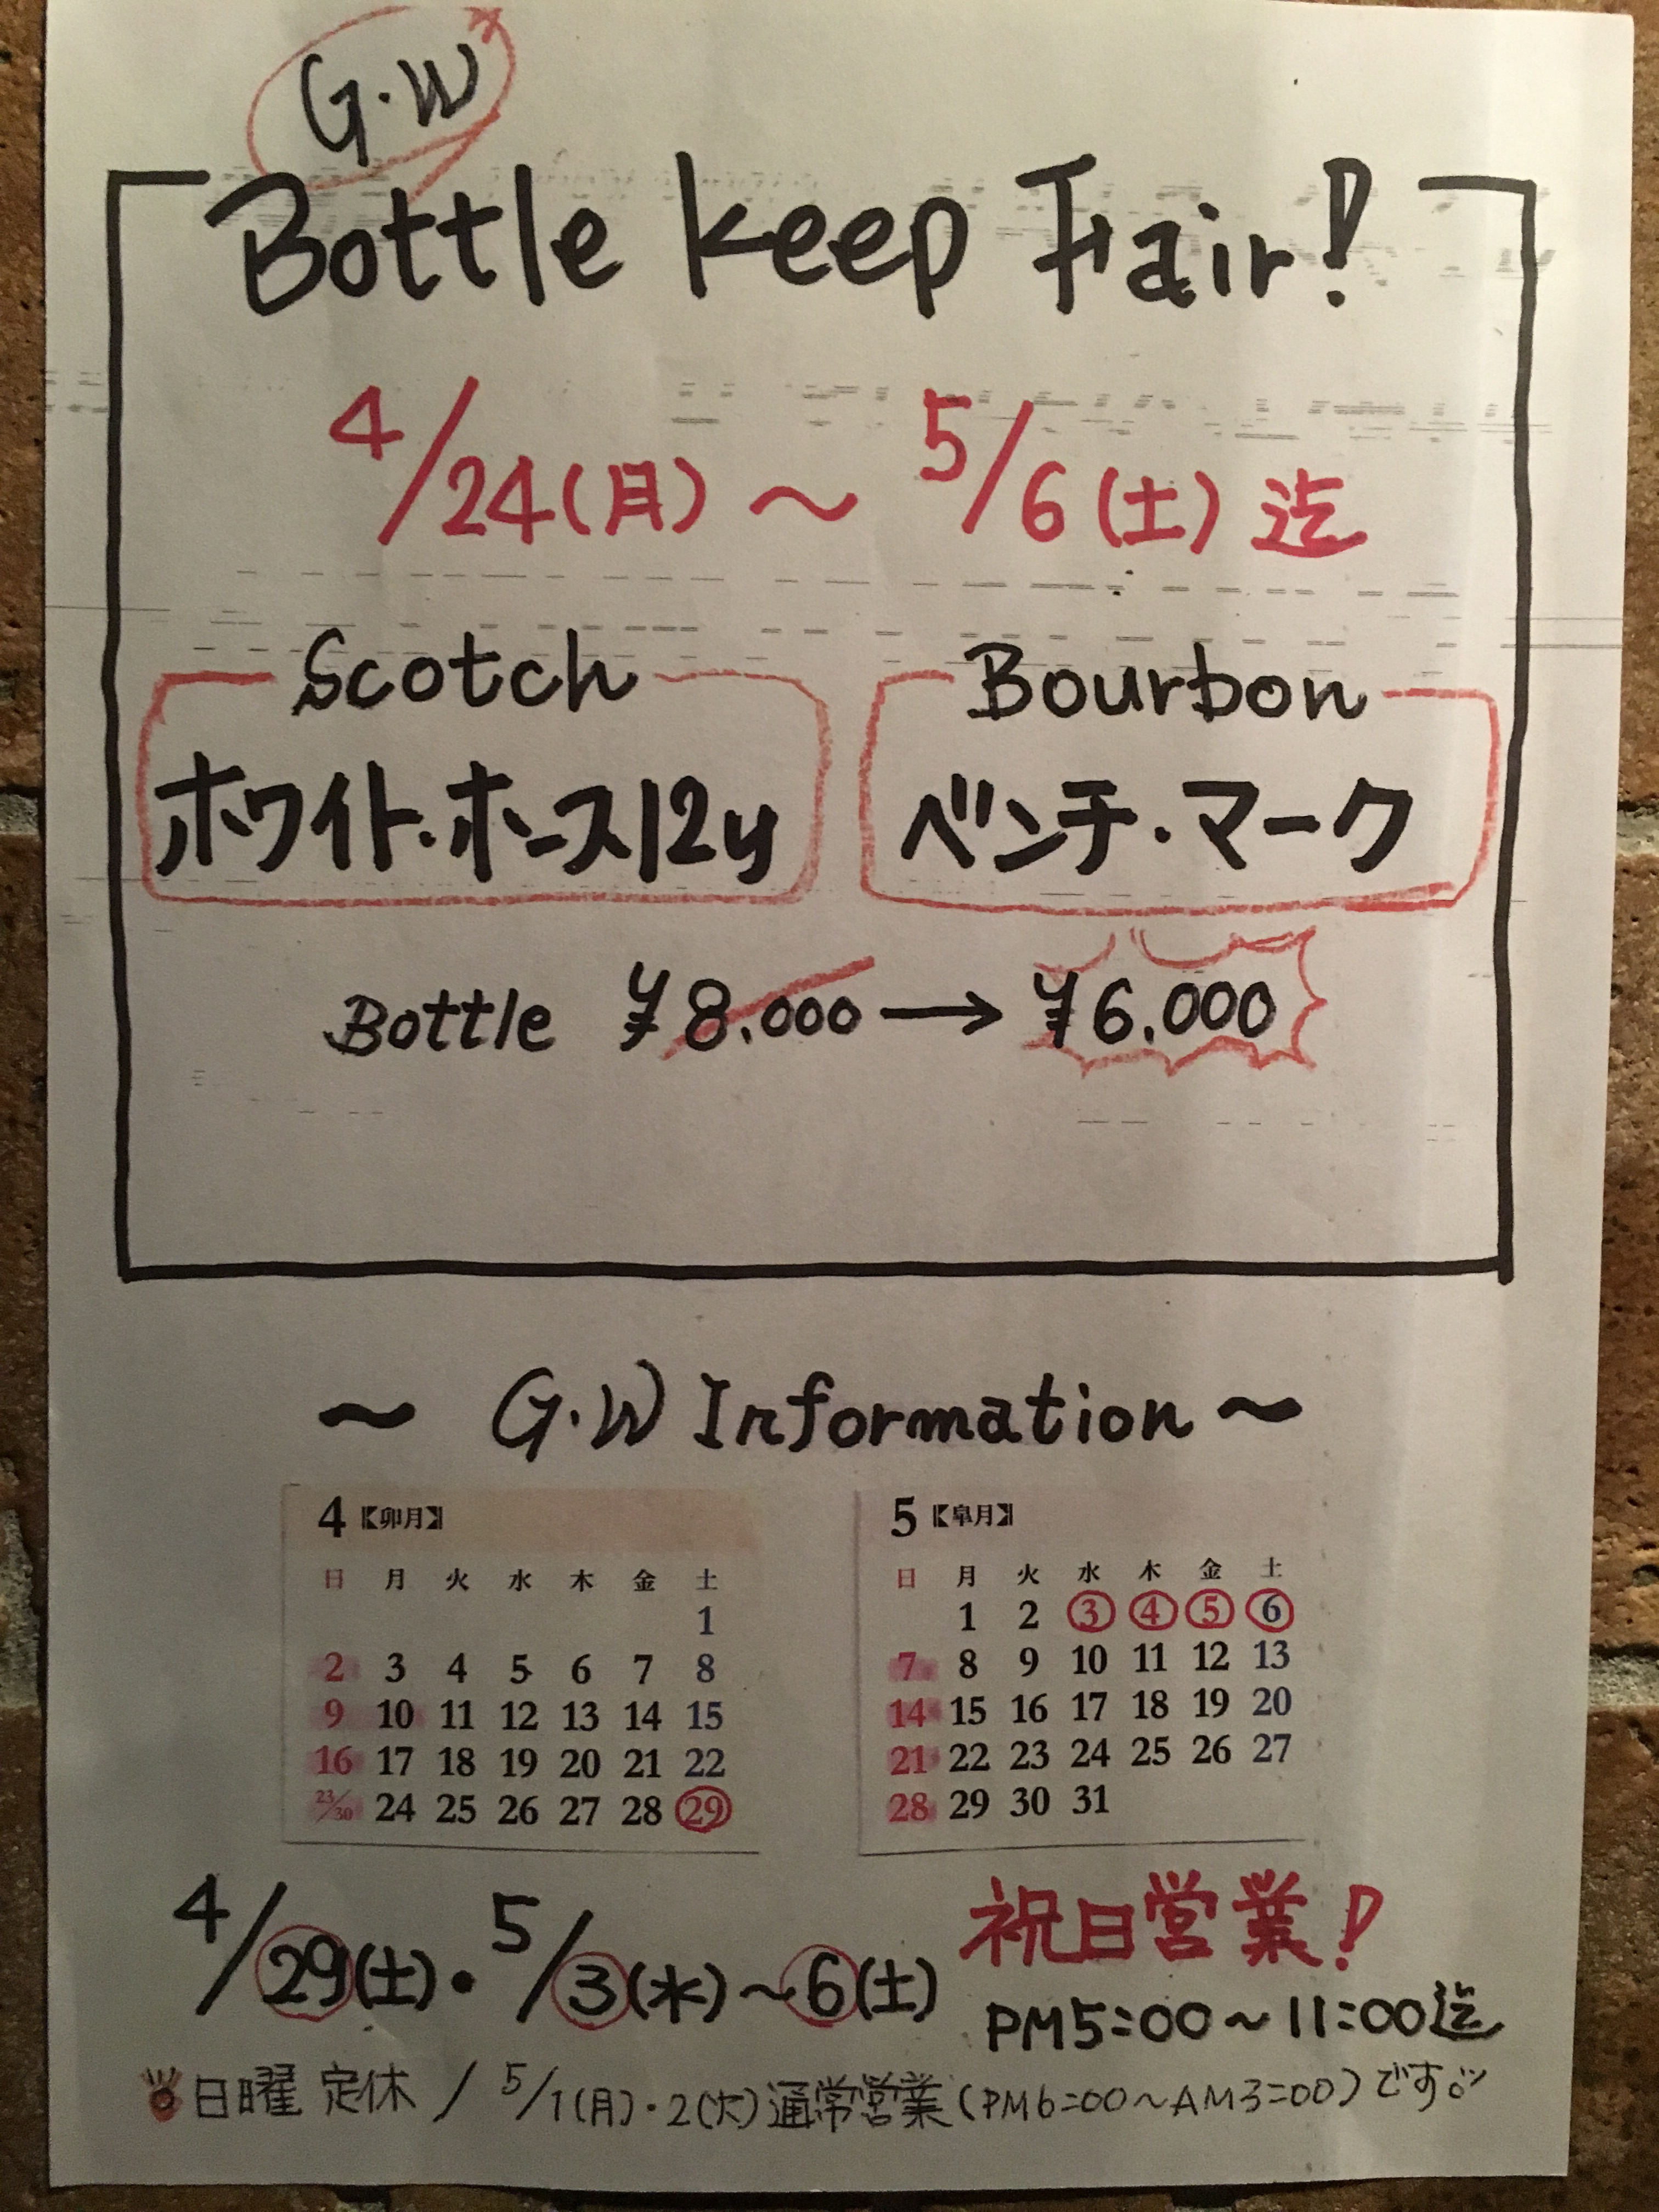 G.W
Bottle keep Fair!
4/24(月) ～ 5/6(土) 迄
Scotch
ホワイト・ホース12y
Bourbon
ベンチ・マーク
Bottle ¥8.000 → ¥6.000
～ G.W Information ～
4【卯月】
日 月 火 水 木 金 土
1
2 3 4 5 6 7 8
9 10 11 12 13 14 15
16 17 18 19 20 21 22
23/30 24 25 26 27 28 29
5【皐月】
日 月 火 水 木 金 土
1 2 3 4 5 6
7 8 9 10 11 12 13
14 15 16 17 18 19 20
21 22 23 24 25 26 27
28 29 30 31
4/29(土)・5/3(水)～6(土) 祝日営業!
PM5:00～11:00迄
日曜 定休 / 5/1(月)・2(火)通常営業(PM6:00～AM3:00)です